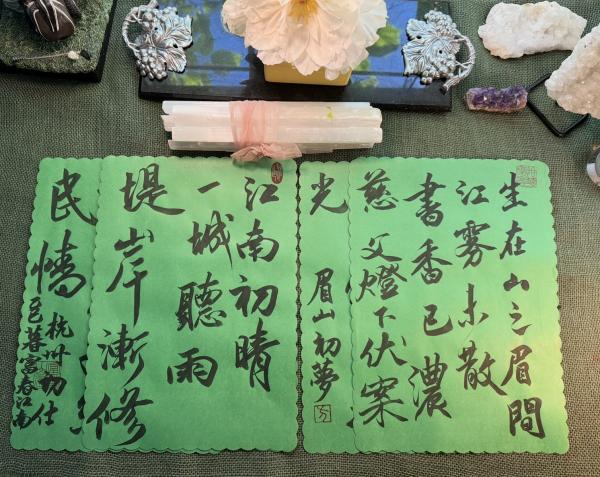 生在山之眉間
江雾未散
書香已濃
慈父燈下伏案
光
眉山初夢
江南初晴
一城聽雨
堤岸漸修
民
杭州初仕
暮富春江南